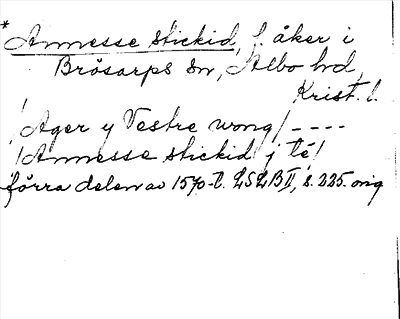 * Annesse stickid, f. åker i
Brösarps sn, Albo hd,
Krist. l.
/Ager y Vestre wong/ - - - -
/Annesse stickid j té/
förra delen av 1570-t. LSLB II, s. 225. orig